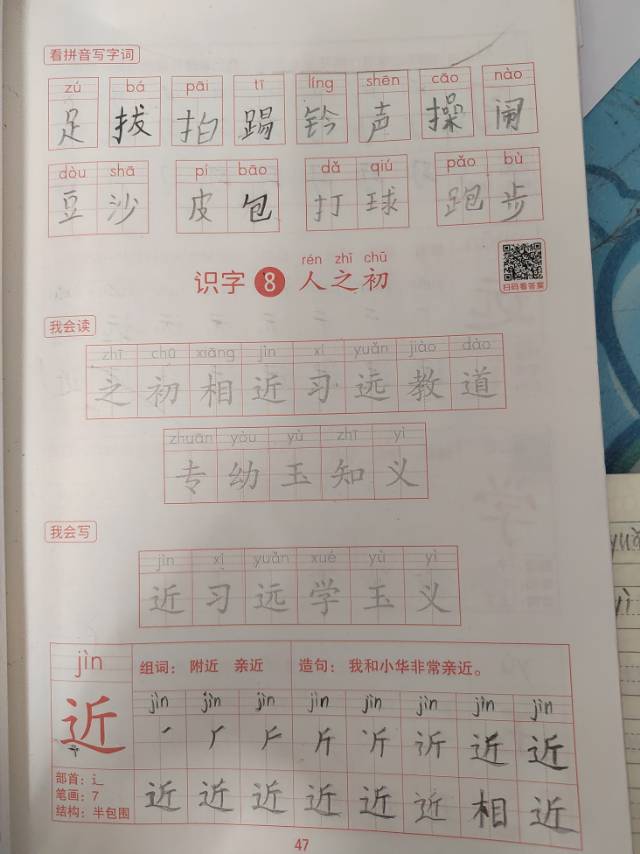 看拼音写字词
zú bá pāi tī líng shēn cāo nào
足 拔 拍 踢 铃 声 操 闹
dòu shā pí bāo dǎ qiú pǎo bù
豆沙 皮包 打球 跑步
rén zhī chū
识字 8 人之初
扫码看答案
我会读
zhī chū xiāng jìn xí yuǎn jiào dào
之 初 相 近 习 远 教 道
zhuān yòu yù zhī yì
专 幼 玉 知 义
我会写
jìn xí yuǎn xué yù yì
近 习 远 学 玉 义
jìn
近
部首：辶
笔画：7
结构：半包围
组词：附近 亲近 造句：我和小华非常亲近。
jìn jìn jìn jìn jìn jìn jìn jìn
近 近
近 近 近 近 近 近 相 近
47